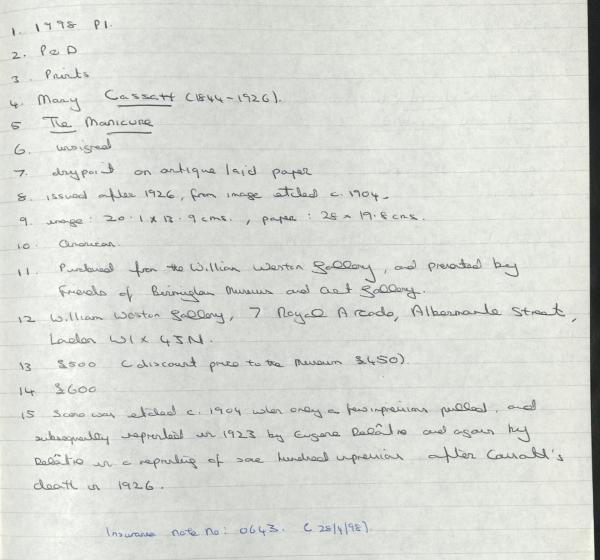 1. 1998 P1.
2. P&D
3 Prints
4. Mary Cassatt (1844-1926).
5 The Manicure
6. unsigned
7. drypoint on antique laid paper
8. issued after 1926, from image etched c. 1904.
9. image: 20.1 x 13.9 cms., paper: 28 x 19.8 cms.
10. American.
11. Purchased from the William Weston Gallery, and presented by
Friends of Birmingham Museum and Art Gallery.
12 William Weston Gallery, 7 Royal Arcade, Albermarle Street,
London W1X 4SN.
13 £500 (discount price to the Museum £450).
14 £600
15 Scene was etched c. 1904 when only a few impressions pulled, and
subsequently reprinted in 1923 by Eugene Delâtre and again by
Delâtre in a reprinting of one hundred impressions after Cassatt's
death in 1926.
Insurance note no: 0643. (28/4/98)